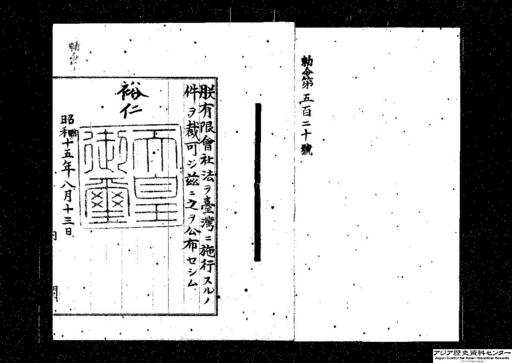 勅令第五百二十號
朕有限會社法ヲ臺灣ニ施行スルノ
件ヲ裁可シ茲ニ之ヲ公布セシム
裕仁
天皇
御璽
昭和十五年八月十三日
勅令
内
閣
アジア歴史資料センター
Japan Center for Asian Historical Records